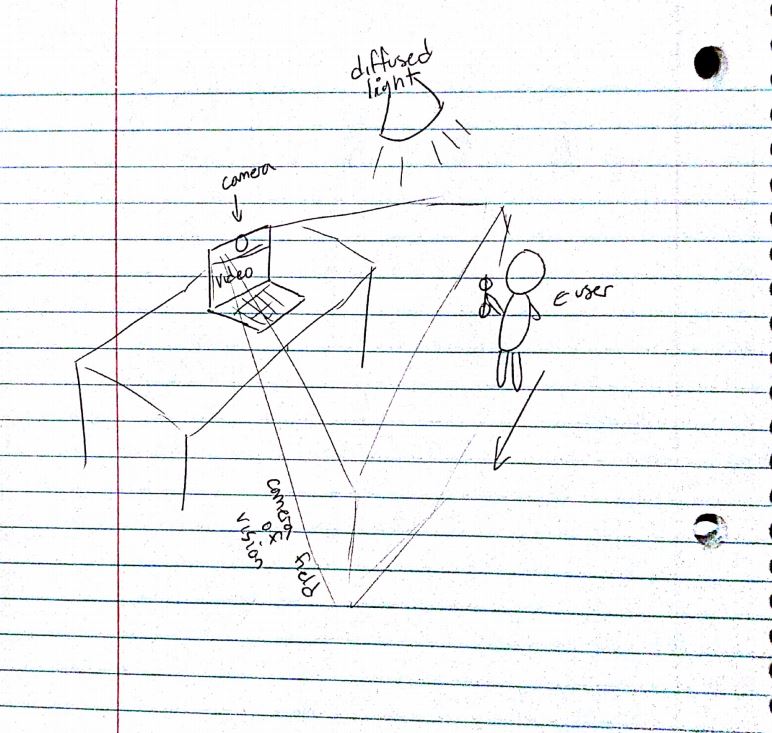 diffused
light
camera
video
user
camera
field
of
vision